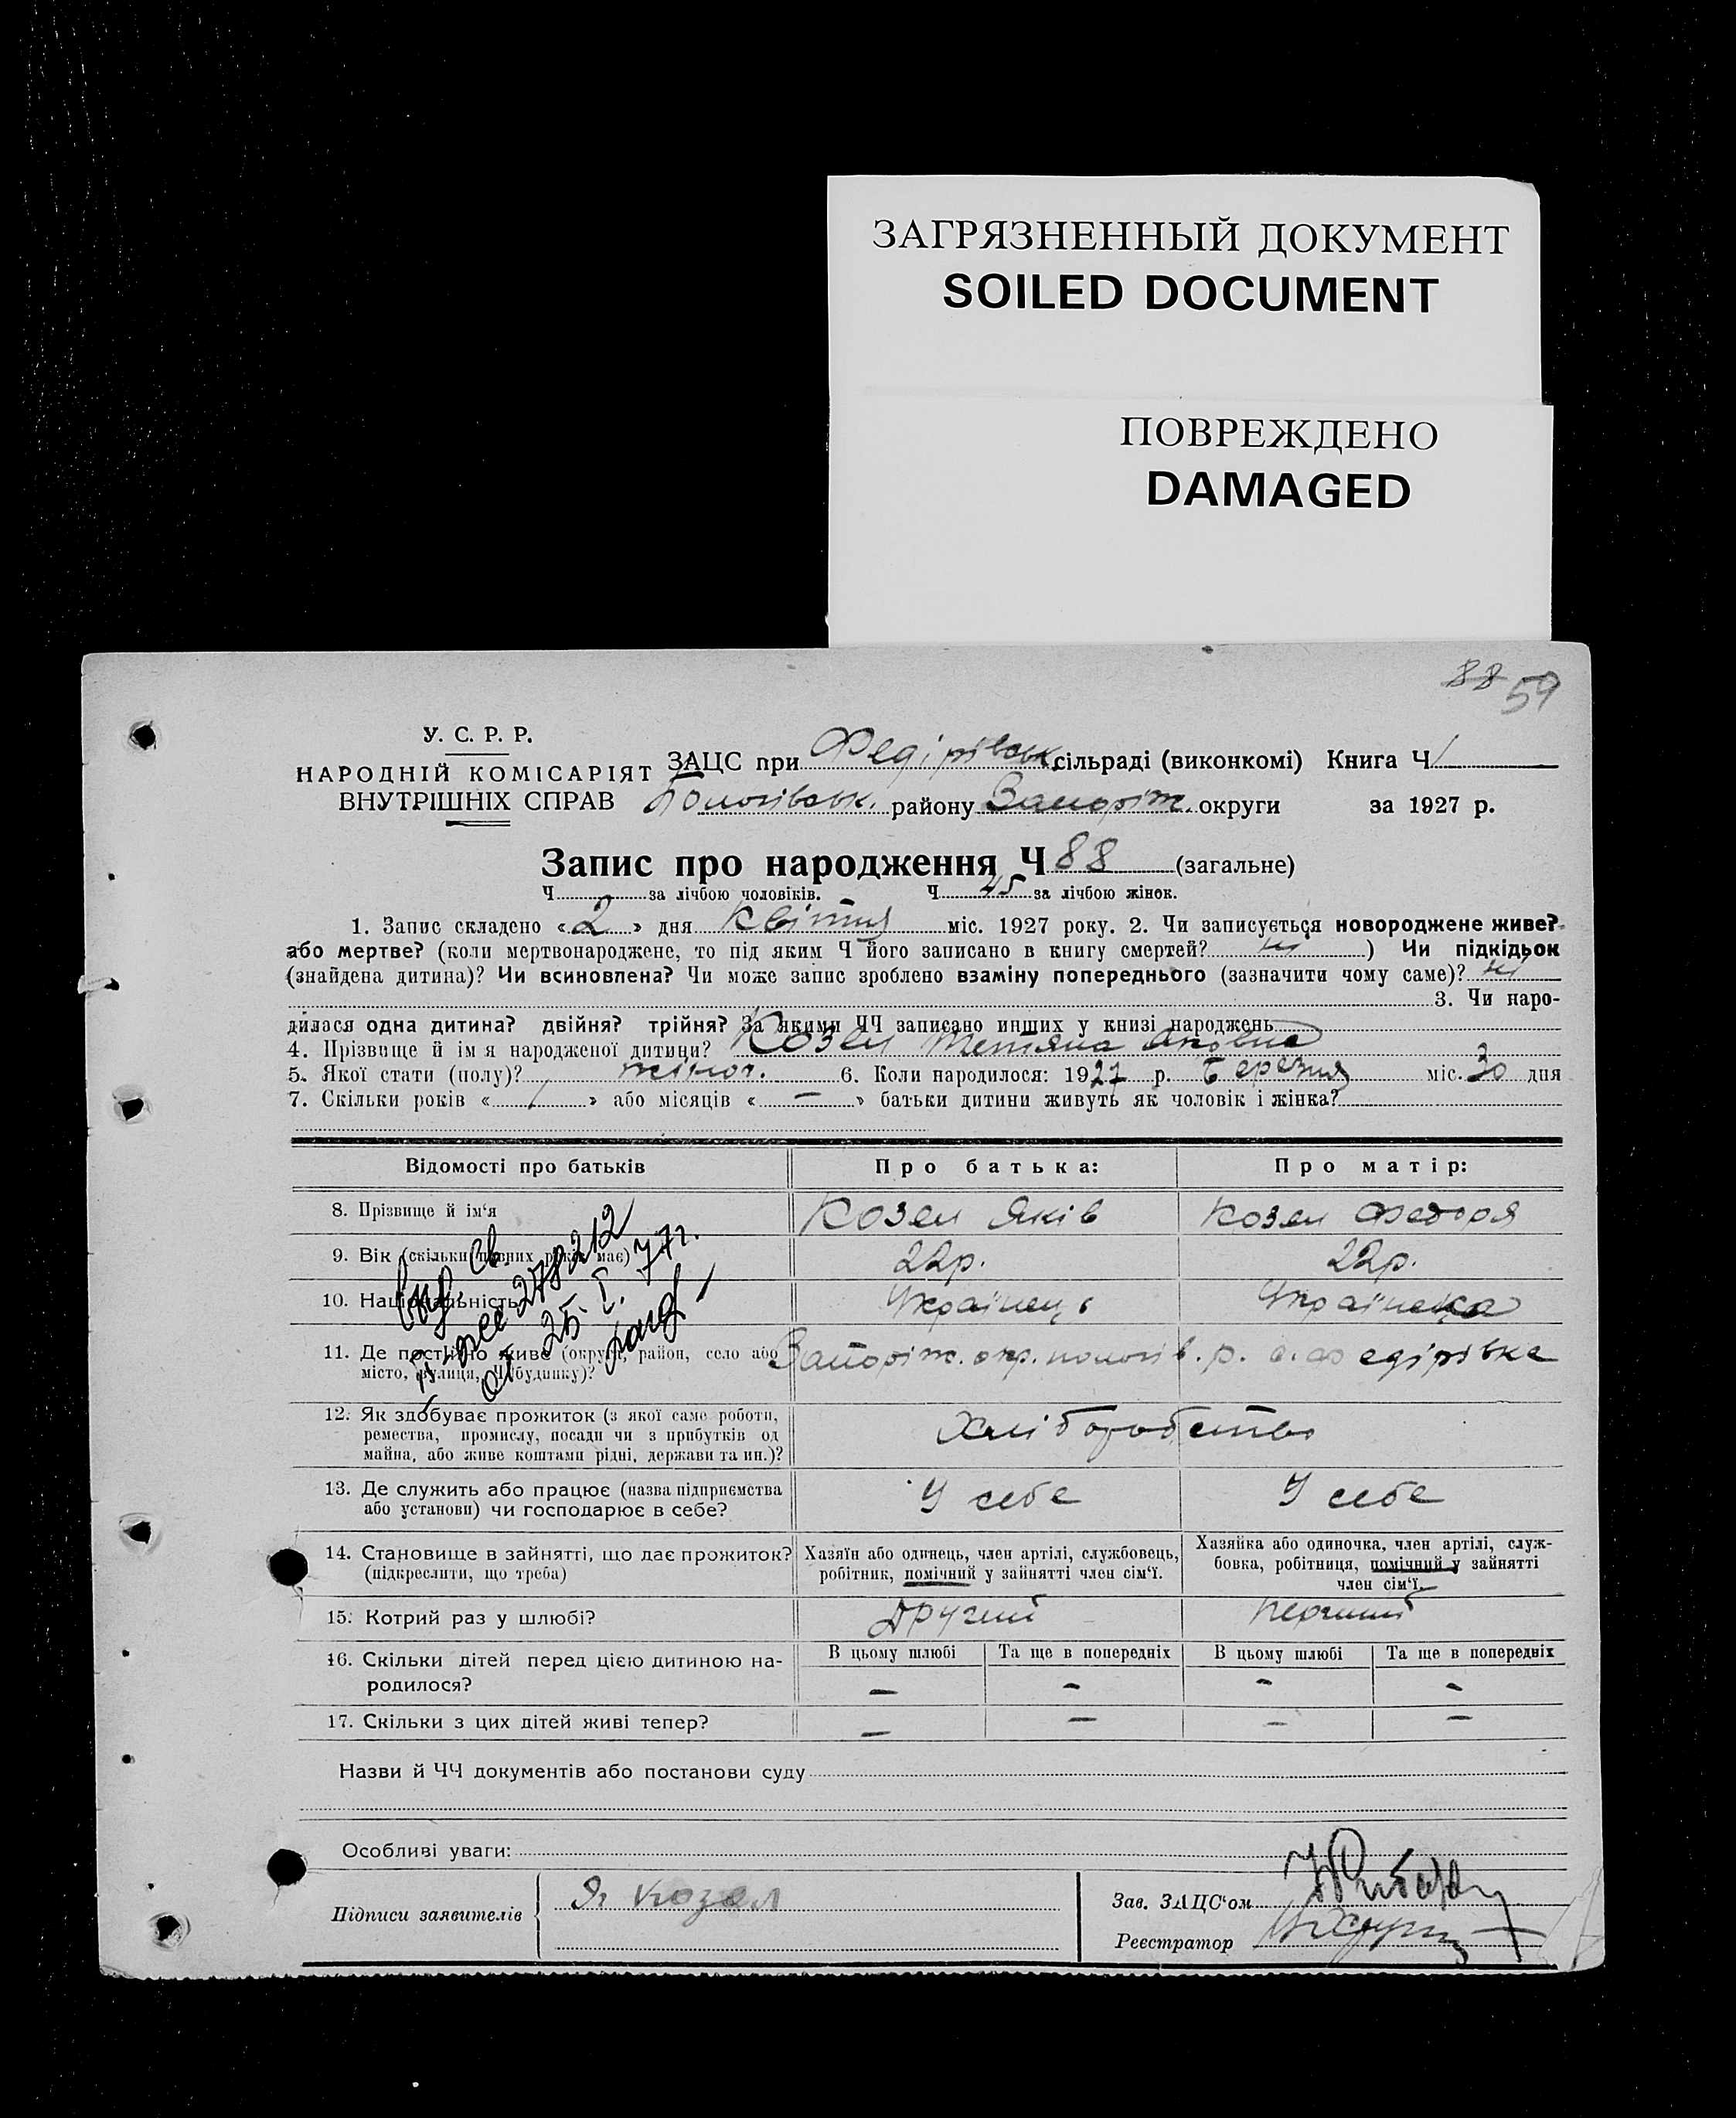 ЗАГРЯЗНЕННЫЙ ДОКУМЕНТ
SOILED DOCUMENT
ПОВРЕЖДЕНО
DAMAGED
88 59
У. С. Р. Р.
НАРОДНІЙ КОМІСАРІЯТ
ВНУТРІШНІХ СПРАВ
ЗАЦС при Федірівськ сільраді (виконкомі) Книга Ч 1
Пологівськ. району Запоріж. округи за 1927 р.
Запис про народження Ч 88 (загальне)
Ч за лічбою чоловіків. Ч 45 за лічбою жінок.
1. Запис складено «2» дня Квітня міс. 1927 року. 2. Чи записується новороджене живе?
або мертве? (коли мертвонароджене, то під яким Ч його записано в книгу смертей? ні ) Чи підкідьок
(знайдена дитина)? Чи всиновлена? Чи може запис зроблено взаміну попереднього (зазначити чому саме)? ні
3. Чи наро-
дилася одна дитина? двійня? трійня? За якими ЧЧ записано инших у книзі народжень
4. Прізвище й ім я народженої дитини? Козел Тетяна Яковна
5. Якої стати (полу)? жіноч. 6. Коли народилося: 1927 р. Березня міс. 30 дня
7. Скільки років « 1 » або місяців « — » батьки дитини живуть як чоловік і жінка?
Відомості про батьків Про батька: Про матір:
8. Прізвище й ім'я Козел Яків Козел Федора
9. Вік (скільки повних років має) 22р. 22р.
10. Національність Українець Українека
11. Де постійно живе (округа, район, село або Запоріж. окр. пологів. р. с. Федірівка
місто, вулиця, Ч будинку)?
12. Як здобуває прожиток (з якої саме роботи,
ремества, промислу, посади чи з прибутків од
майна, або живе коштами рідні, держави та ин.)? Хліборобство
13. Де служить або працює (назва підприємства
або установи) чи господарює в себе? У себе У себе
14. Становище в зайнятті, що дає прожиток?
(підкреслити, що треба)
Хазяїн або одинець, член артілі, службовець,
робітник, помічний у зайнятті член сім'ї.
Хазяйка або одиночка, член артілі, служ-
бовка, робітниця, помічний у зайнятті
член сім'ї.
15. Котрий раз у шлюбі? Другий Перший
16. Скільки дітей перед цією дитиною на-
родилося?
В цьому шлюбі Та ще в попередніх В цьому шлюбі Та ще в попередніх
— — — —
17. Скільки з цих дітей живі тепер? — — — —
Св.
278212
от 25. I. 77г.
Назви й ЧЧ документів або постанови суду
Особливі уваги:
Підписи заявителів Я Козел
Зав. ЗАЦС'ом
Реєстратор